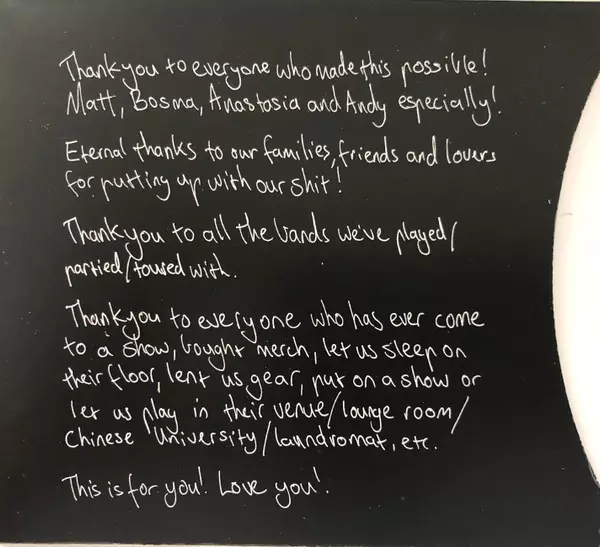 Thank you to everyone who made this possible!
Matt, Bosma, Anastasia and Andy especially!
Eternal thanks to our families, friends and lovers
for putting up with our shit!
Thank you to all the bands we've played/
partied/toured with.
Thank you to everyone who has ever come
to a show, bought merch, let us sleep on
their floor, lent us gear, put on a show or
let us play in their venue/lounge room/
Chinese University/laundromat, etc.
This is for you! Love you!